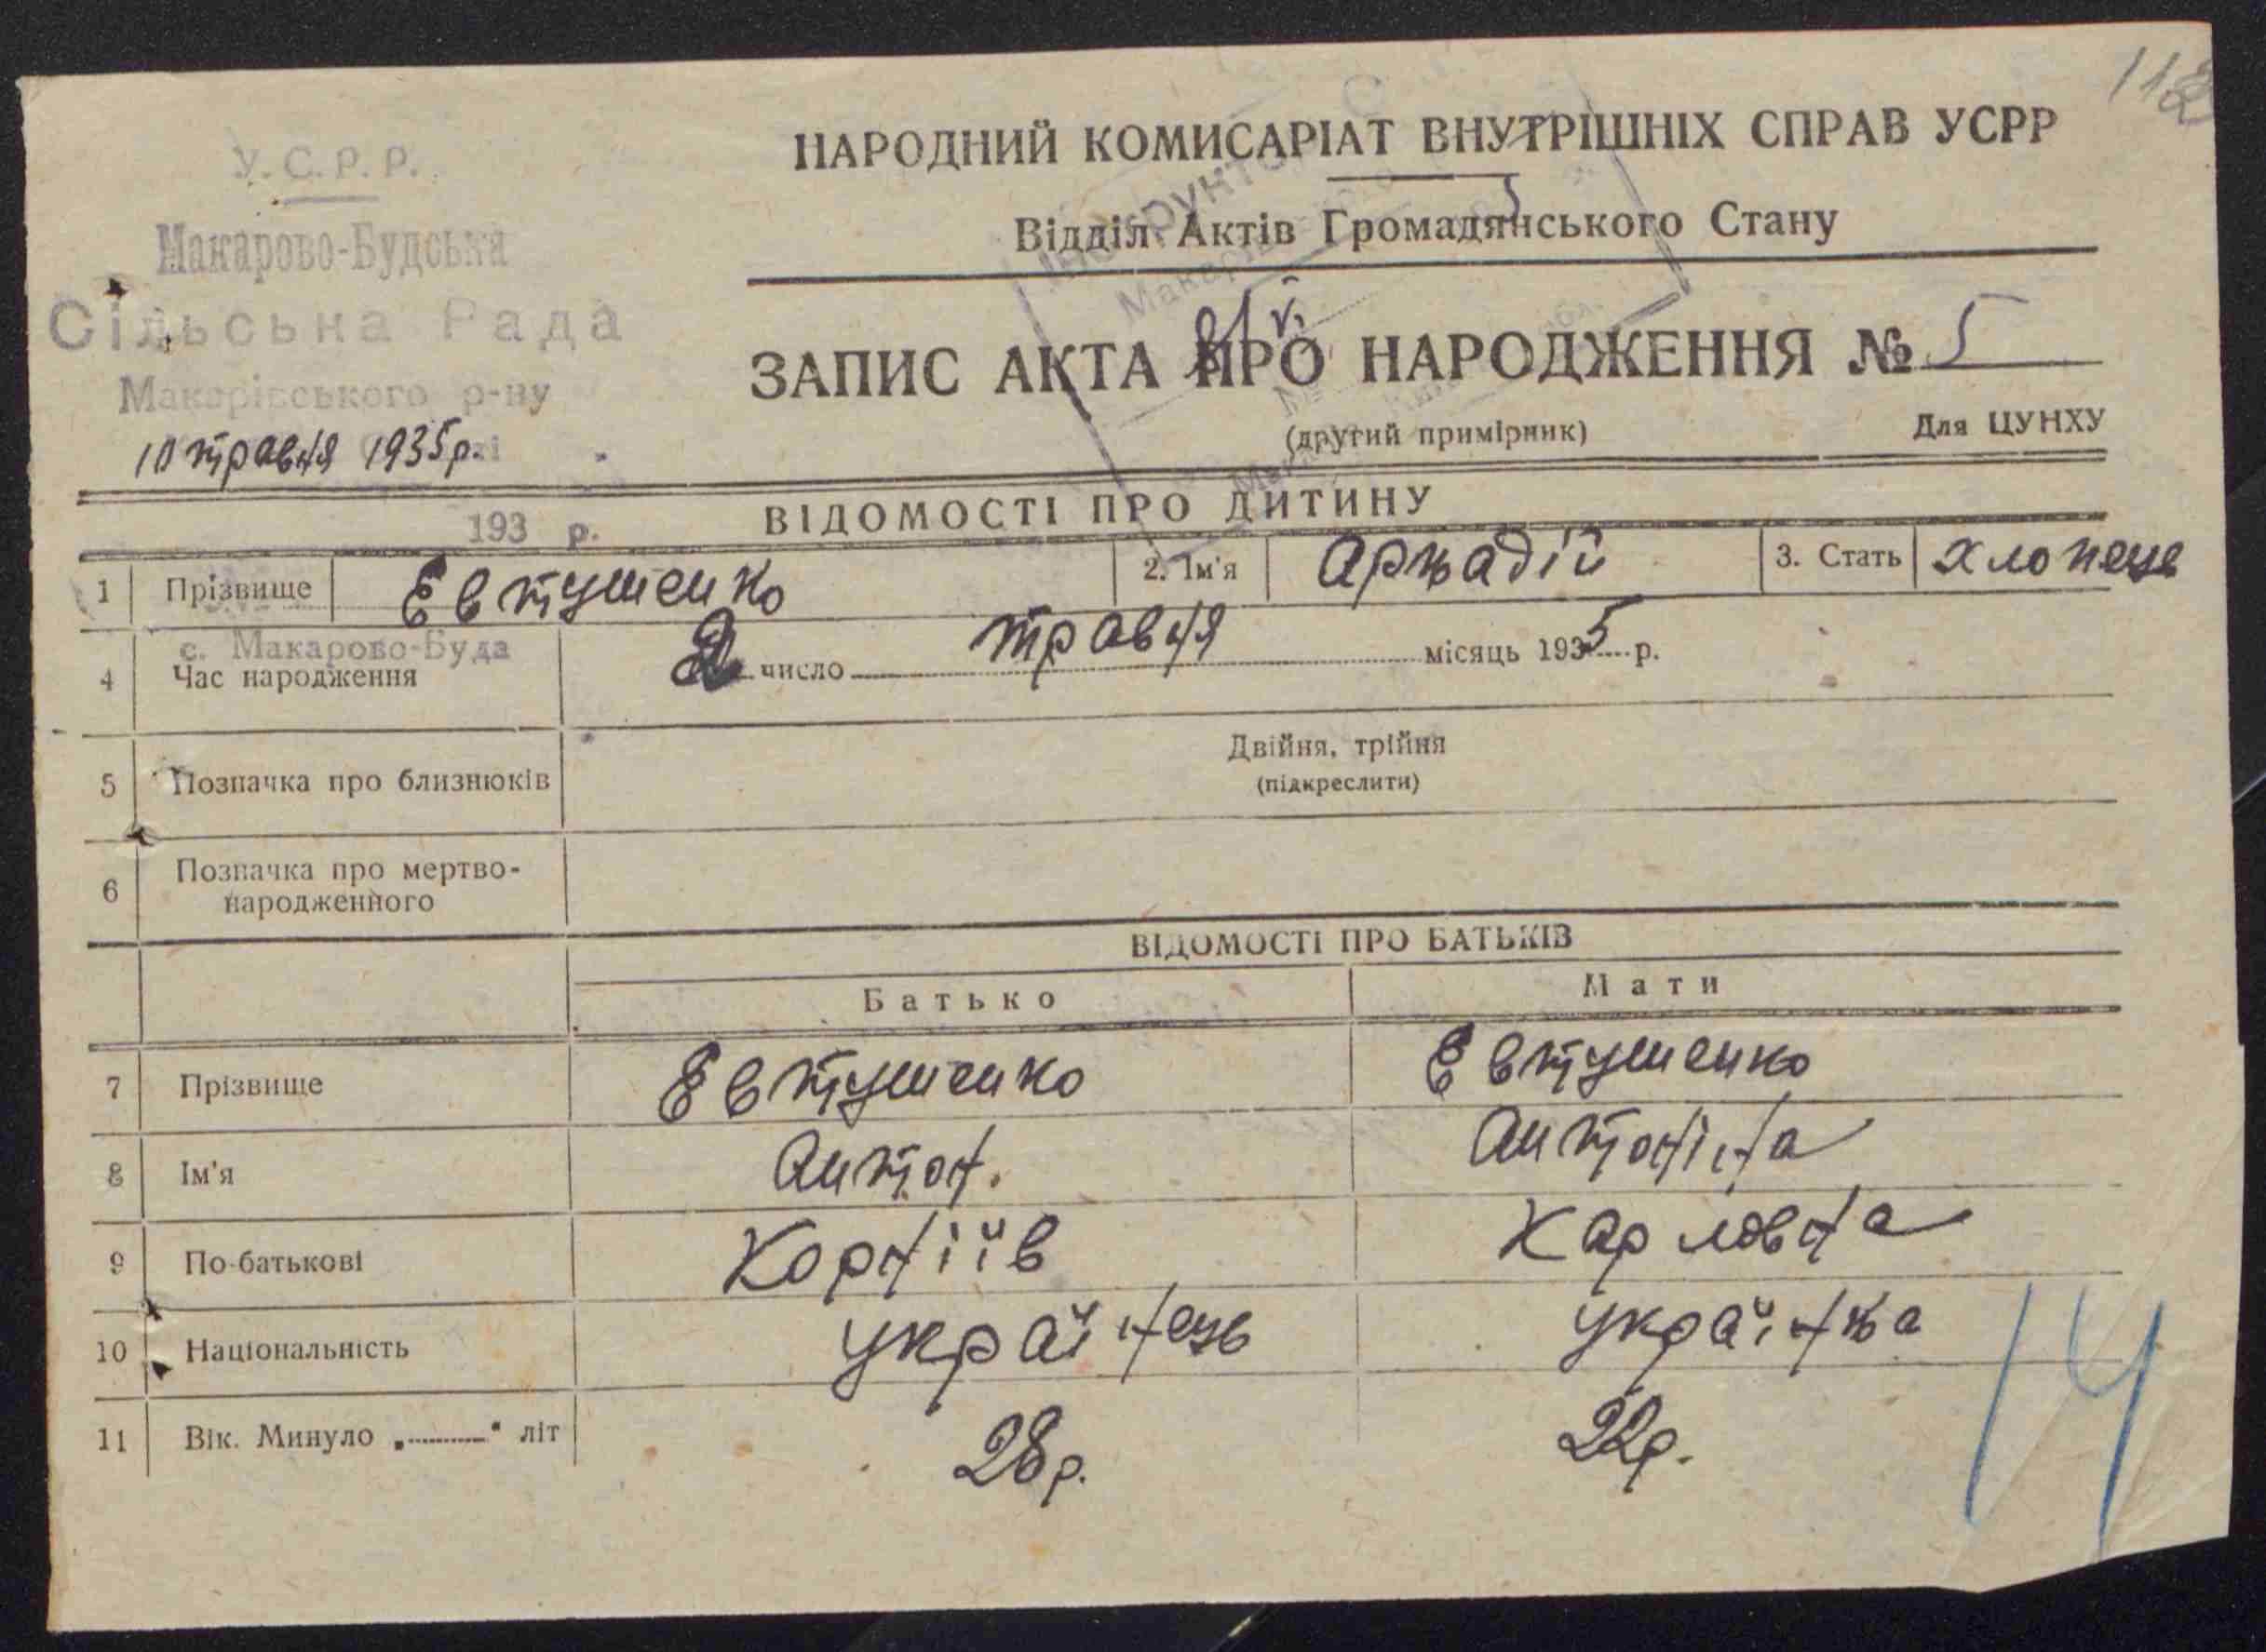 У.С.Р.Р.
Макарово-Будська
Сільська Рада
Макарівського р-ну
10 травня 1935р.
193 р.
с. Макарово-Буда
НАРОДНИЙ КОМИСАРІАТ ВНУТРІШНІХ СПРАВ УСРР
Відділ Актів Громадянського Стану
ЗАПИС АКТА ПРО НАРОДЖЕННЯ № 5
(другий примірник) Для ЦУНХУ
ВІДОМОСТІ ПРО ДИТИНУ
1 Прізвище Евтушенко 2. Ім'я Аркадій 3. Стать хлопець
4 Час народження число травня місяць 1935 р.
5 Позначка про близнюків Двійня, трійня
(підкреслити)
6 Позначка про мертво-
народженного
ВІДОМОСТІ ПРО БАТЬКІВ
Батько Мати
7 Прізвище Евтушенко Евтушенко
8 Ім'я Антон. Антоніна
9 По-батькові Корніїв Карловна
10 Національність українець українка
11 Вік. Минуло „ “ літ 28р. 22р.
14